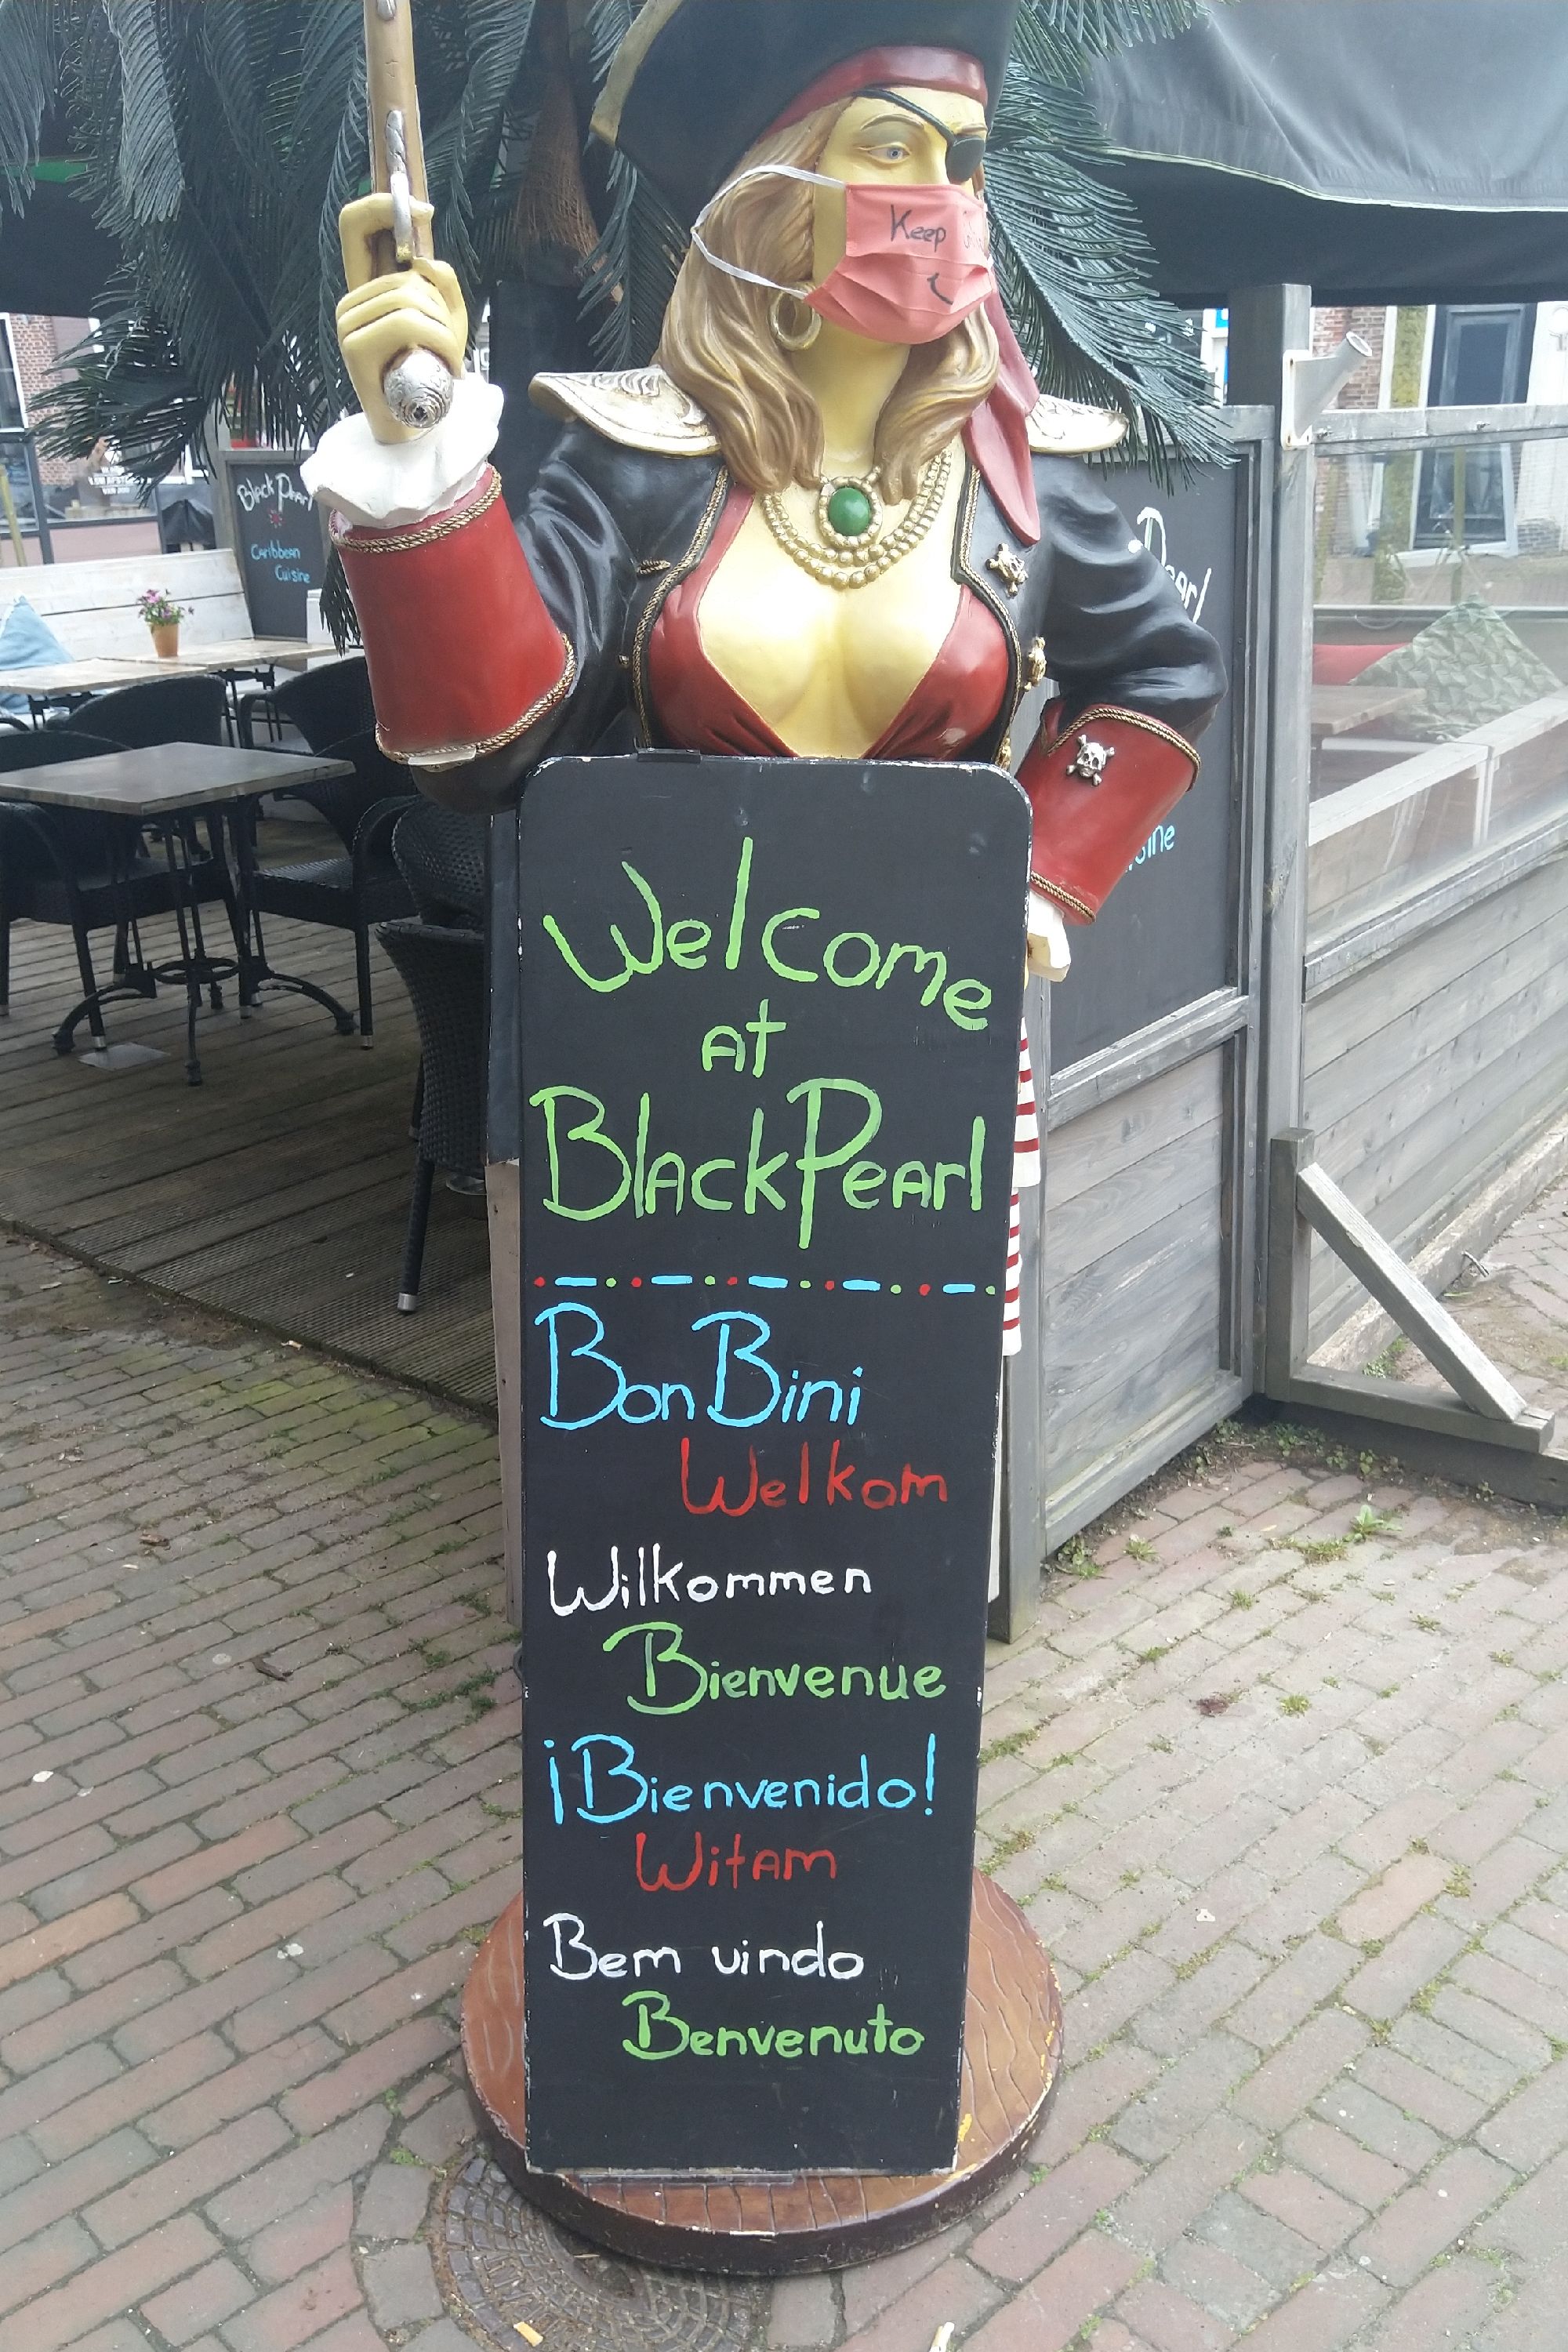 Keep
Black Pearl
Caribbean
Cuisine
Pearl
Welcome
at
Black Pearl
Bon Bini
Welkom
Wilkommen
Bienvenue
¡Bienvenido!
Witam
Bem vindo
Benvenuto